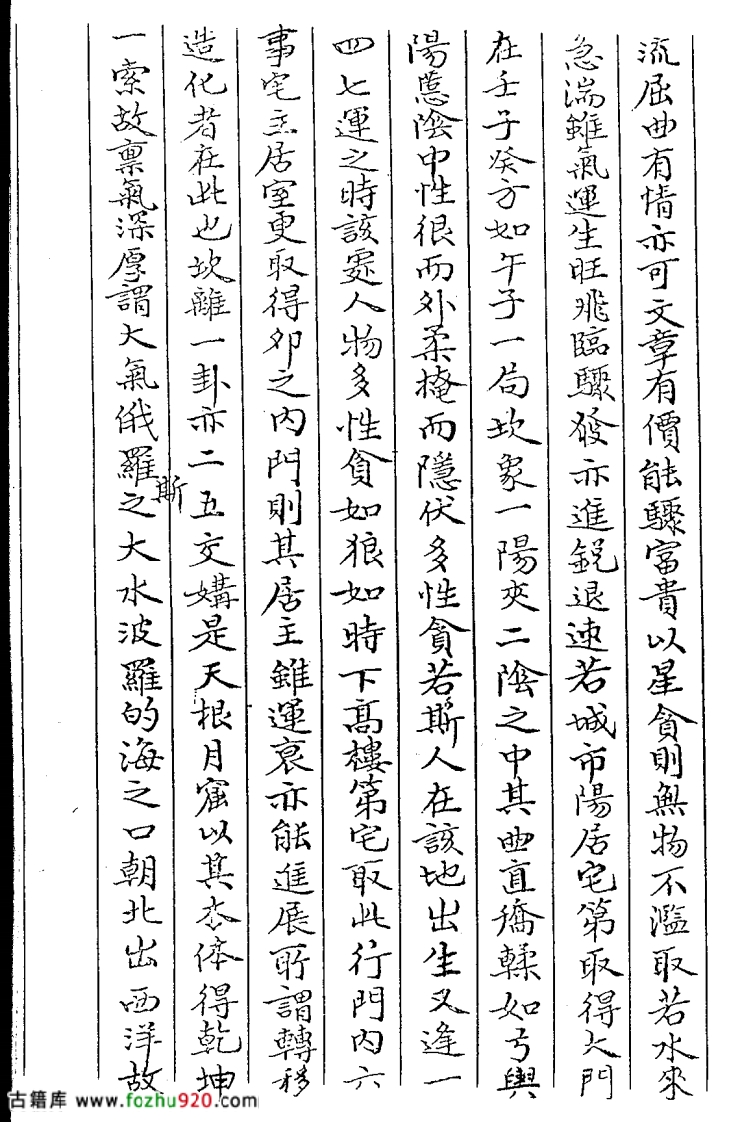 流屈曲有情亦可文章有價能驟富貴以星貪則無物不濫取若水來
急湍雖氣運生旺飛臨驟發亦進銳退速若城市陽居宅第取得大門
在壬子癸方如午子一局坎象一陽夾二陰之中其曲直矯輮如弓輿
陽慝陰中性很而外柔掩而隱伏多性貪若斯人在該地出生又逢一
四七運之時該處人物多性貪如狼如時下高樓第宅取此行門內六
事宅主居室更取得卯之內門則其居主雖運衰亦能進展所謂轉移
造化者在此也坎離一卦亦二五交媾是天根月窟以其本体得乾坤
一索故禀氣深厚謂大氣俄羅斯之大水波羅的海之口朝北出西洋故
古籍库 www.fozhu920.com